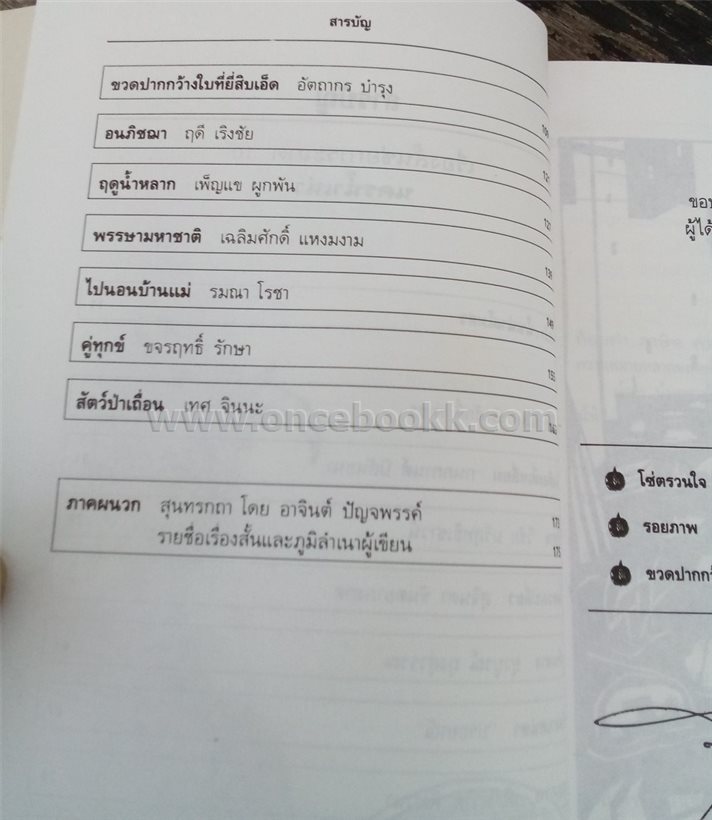 สารบัญ
ขวดปากกว้างใบที่ยี่สิบเอ็ด อัตถากร บำรุง
อนภิชฌา ฤดี เริงชัย
ฤดูน้ำหลาก เพ็ญแข ผูกพัน
พรรษามหาชาติ เฉลิมศักดิ์ แหงมงาม
ไปนอนบ้านแม่ รมณา โรชา
คู่ทุกข์ ขจรฤทธิ์ รักษา
สัตว์ป่าเถื่อน เทศ จินนะ
www.oncebookk.com
ภาคผนวก สุนทรกถา โดย อาจินต์ ปัญจพรรค์
รายชื่อเรื่องสั้นและภูมิลำเนาผู้เขียน
โซ่ตรวนใจ
รอยภาพ